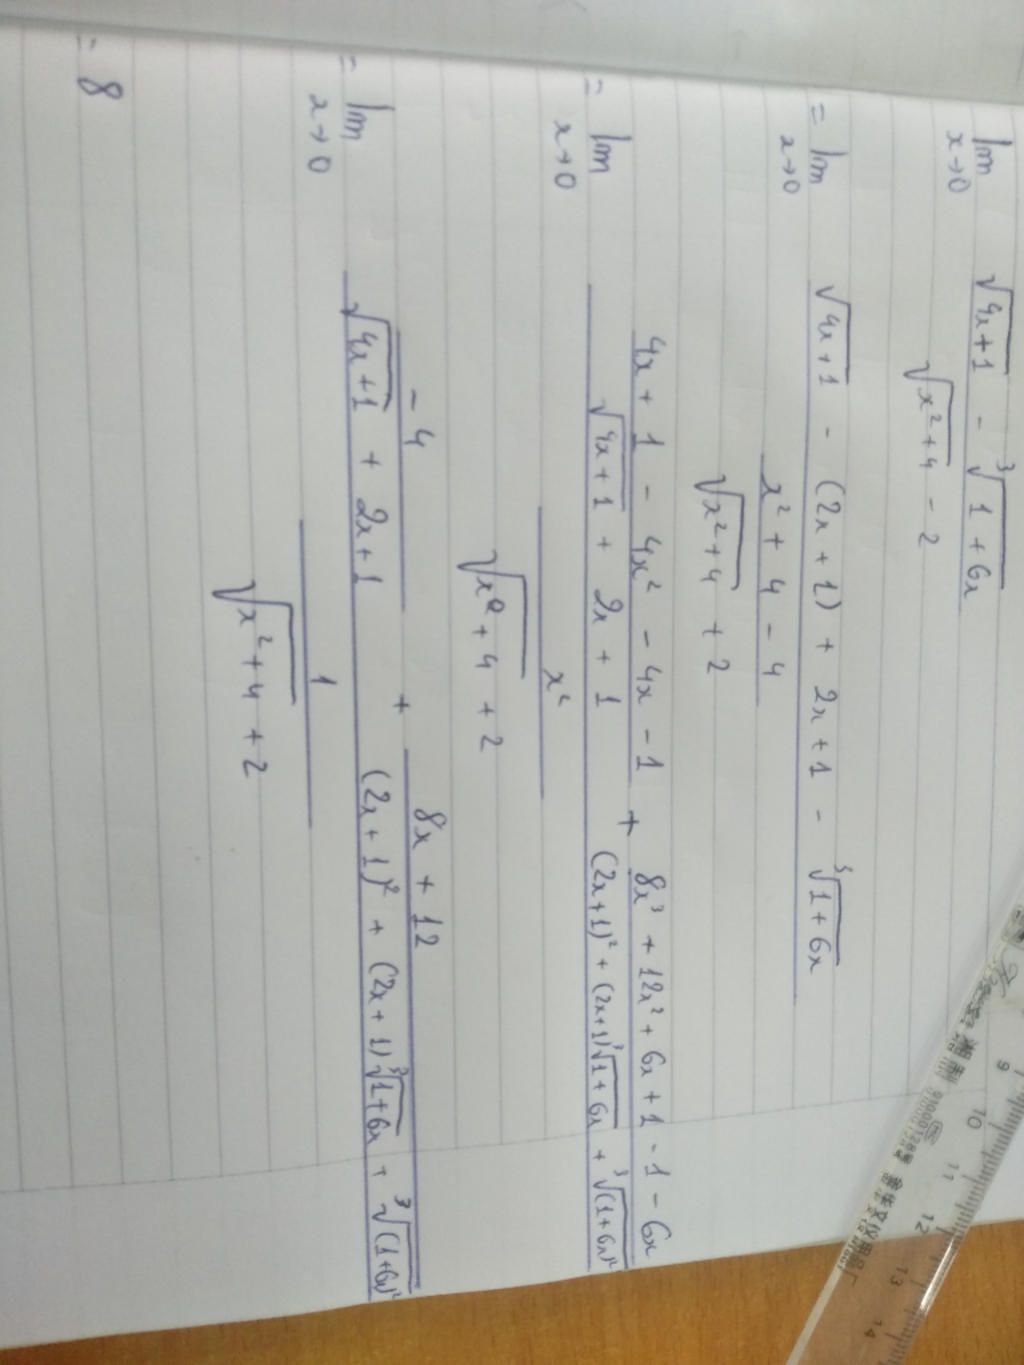 lim x→0 (√(4x+1) - ∛(1+6x)) / (√(x²+4) - 2)
= lim x→0 (√(4x+1) - (2x+1) + 2x+1 - ∛(1+6x)) / ((x²+4-4) / (√(x²+4) + 2))
= lim x→0 ((4x+1 - 4x² - 4x - 1) / (√(4x+1) + 2x + 1) + (8x³ + 12x² + 6x + 1 - 1 - 6x) / ((2x+1)² + (2x+1)∛(1+6x) + ∛(1+6x)²)) / (x² / (√(x²+4) + 2))
= lim x→0 (-4 / (√(4x+1) + 2x+1) + (8x + 12) / ((2x+1)² + (2x+1)∛(1+6x) + ∛(1+6x)²)) / (1 / (√(x²+4) + 2))
= 8
9 10 11 12 13 14